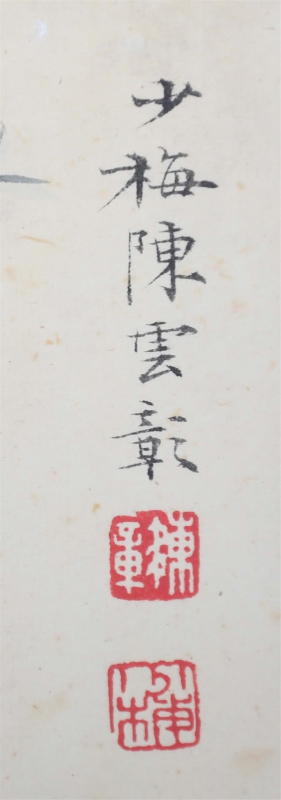 少梅陳雲彰